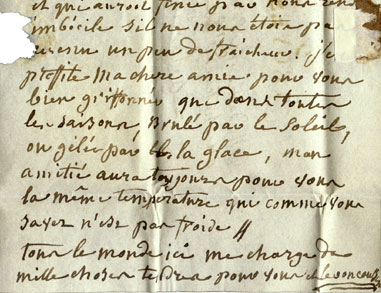 et qui auroit finie par nous rendre
imbécile s'il ne nous étoit pas
un peu de fraicheur. je
profite ma chere amie pour vous
bien griffonnée que dans toutes
les saisons, brulé par le soleil,
ou gelée par la glace, mon
amitié aura toujours pour vous
la même temperature qui comme vous
savez n'est pas froide //
tous le monde ici me charge de
mille choses tendres pour vous et le